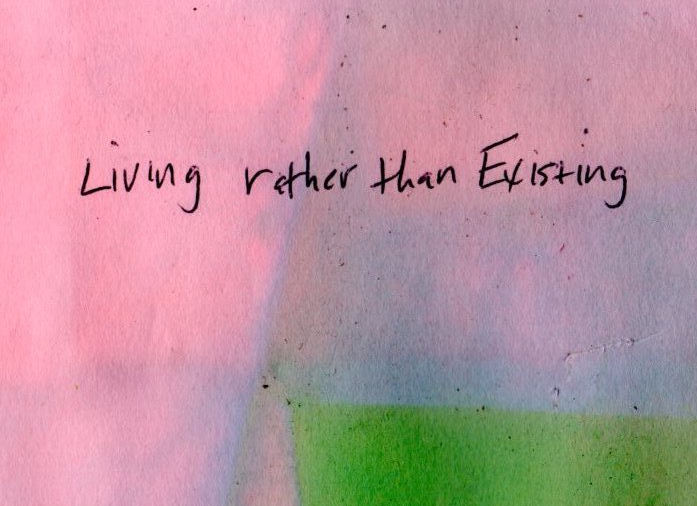 Living rather than Existing